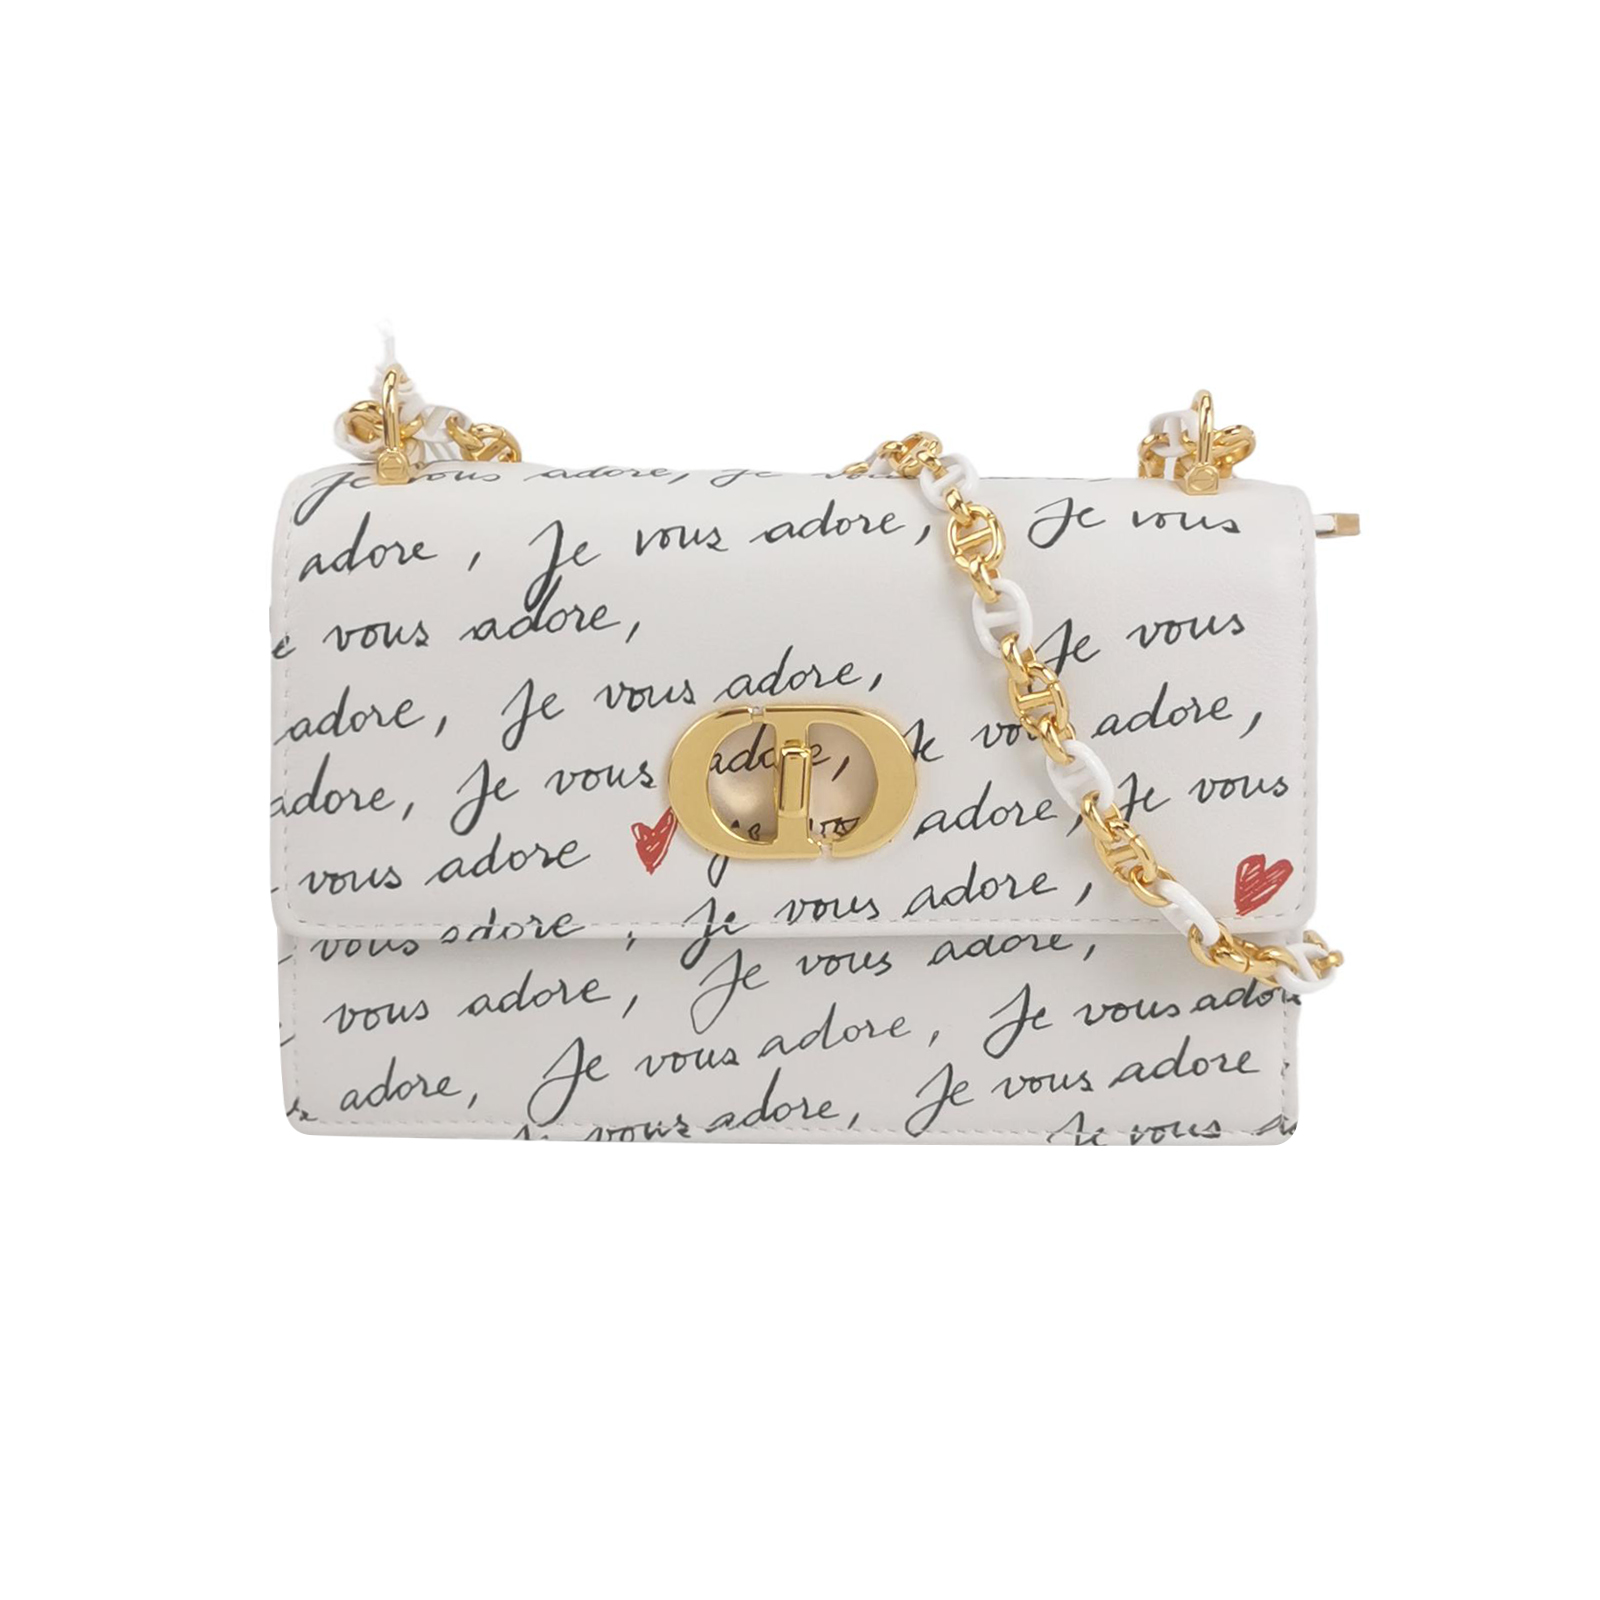 Je vous adore, Je
adore, Je vous adore, Je vous
vous adore, Je vous
adore, Je vous adore, adore,
adore, Je vous adore, Je vous
vous adore adore,
vous adore, Je vous adore,
vous adore, Je vous adore,
adore, Je vous adore, Je vous adore
Je vous adore, Je vous adore
vous